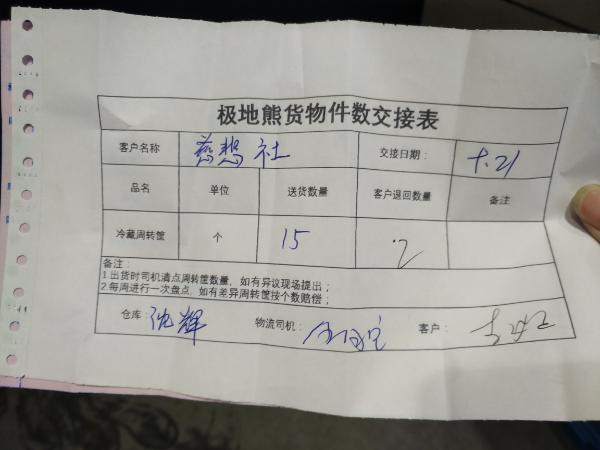 极地熊货物件数交接表
客户名称 慈悲社 交接日期：
品名 单位 送货数量 客户退回数量 备注
冷藏周转筐 个 15 2
备注：
1.出货时司机清点周转筐数量，如有异议现场提出；
2.每周进行一次盘点，如有差异周转筐按个数赔偿；
仓库：沈辉 物流司机： 客户：